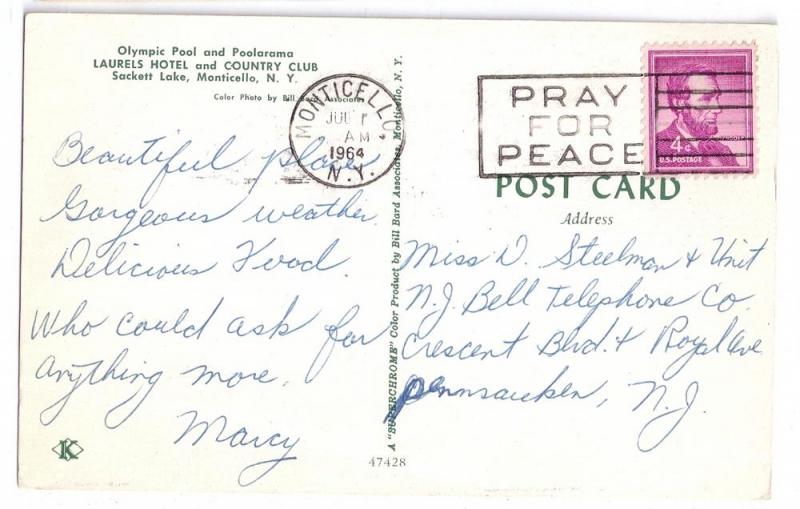 Olympic Pool and Poolarama
LAURELS HOTEL and COUNTRY CLUB
Sackett Lake, Monticello, N. Y.
Color Photo by Bill Bard Associates
MONTICELLO
JUL 1
AM
1964
N.Y.
PRAY
FOR
PEACE
4¢
U.S. POSTAGE
POST CARD
Address
Beautiful place
Gorgeous weather.
Delicious Food.
Who could ask for
anything more.
Marcy
A "SUPERCHROME" Color Product by Bill Bard Associates, Monticello, N. Y.
Miss D. Steelman & Unit
N.J. Bell Telephone Co.
Crescent Blvd. & Royal Ave
Pennsauken, N.J.
K
47428